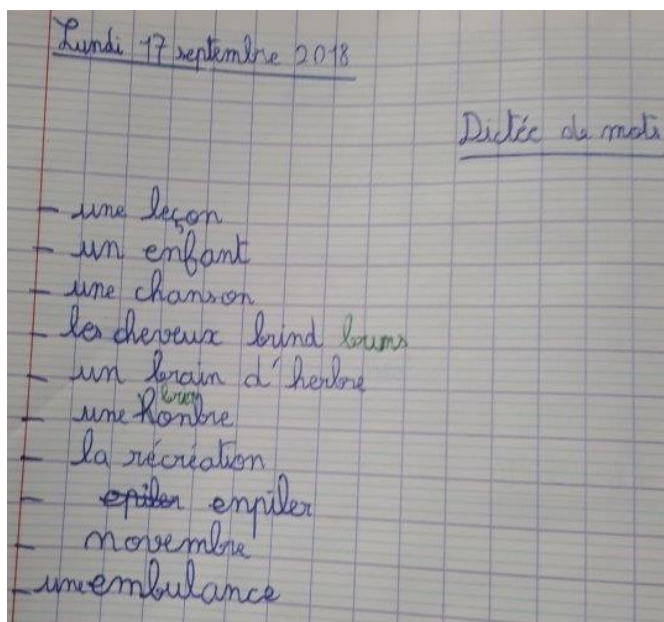 Lundi 17 septembre 2018
Dictée de mots
- une leçon
- un enfant
- une chanson
- les cheveux brind bruns
- un brain d'herbre
- une honbre
- la récréation
- epiler enpiler
- novembre
- une embulance